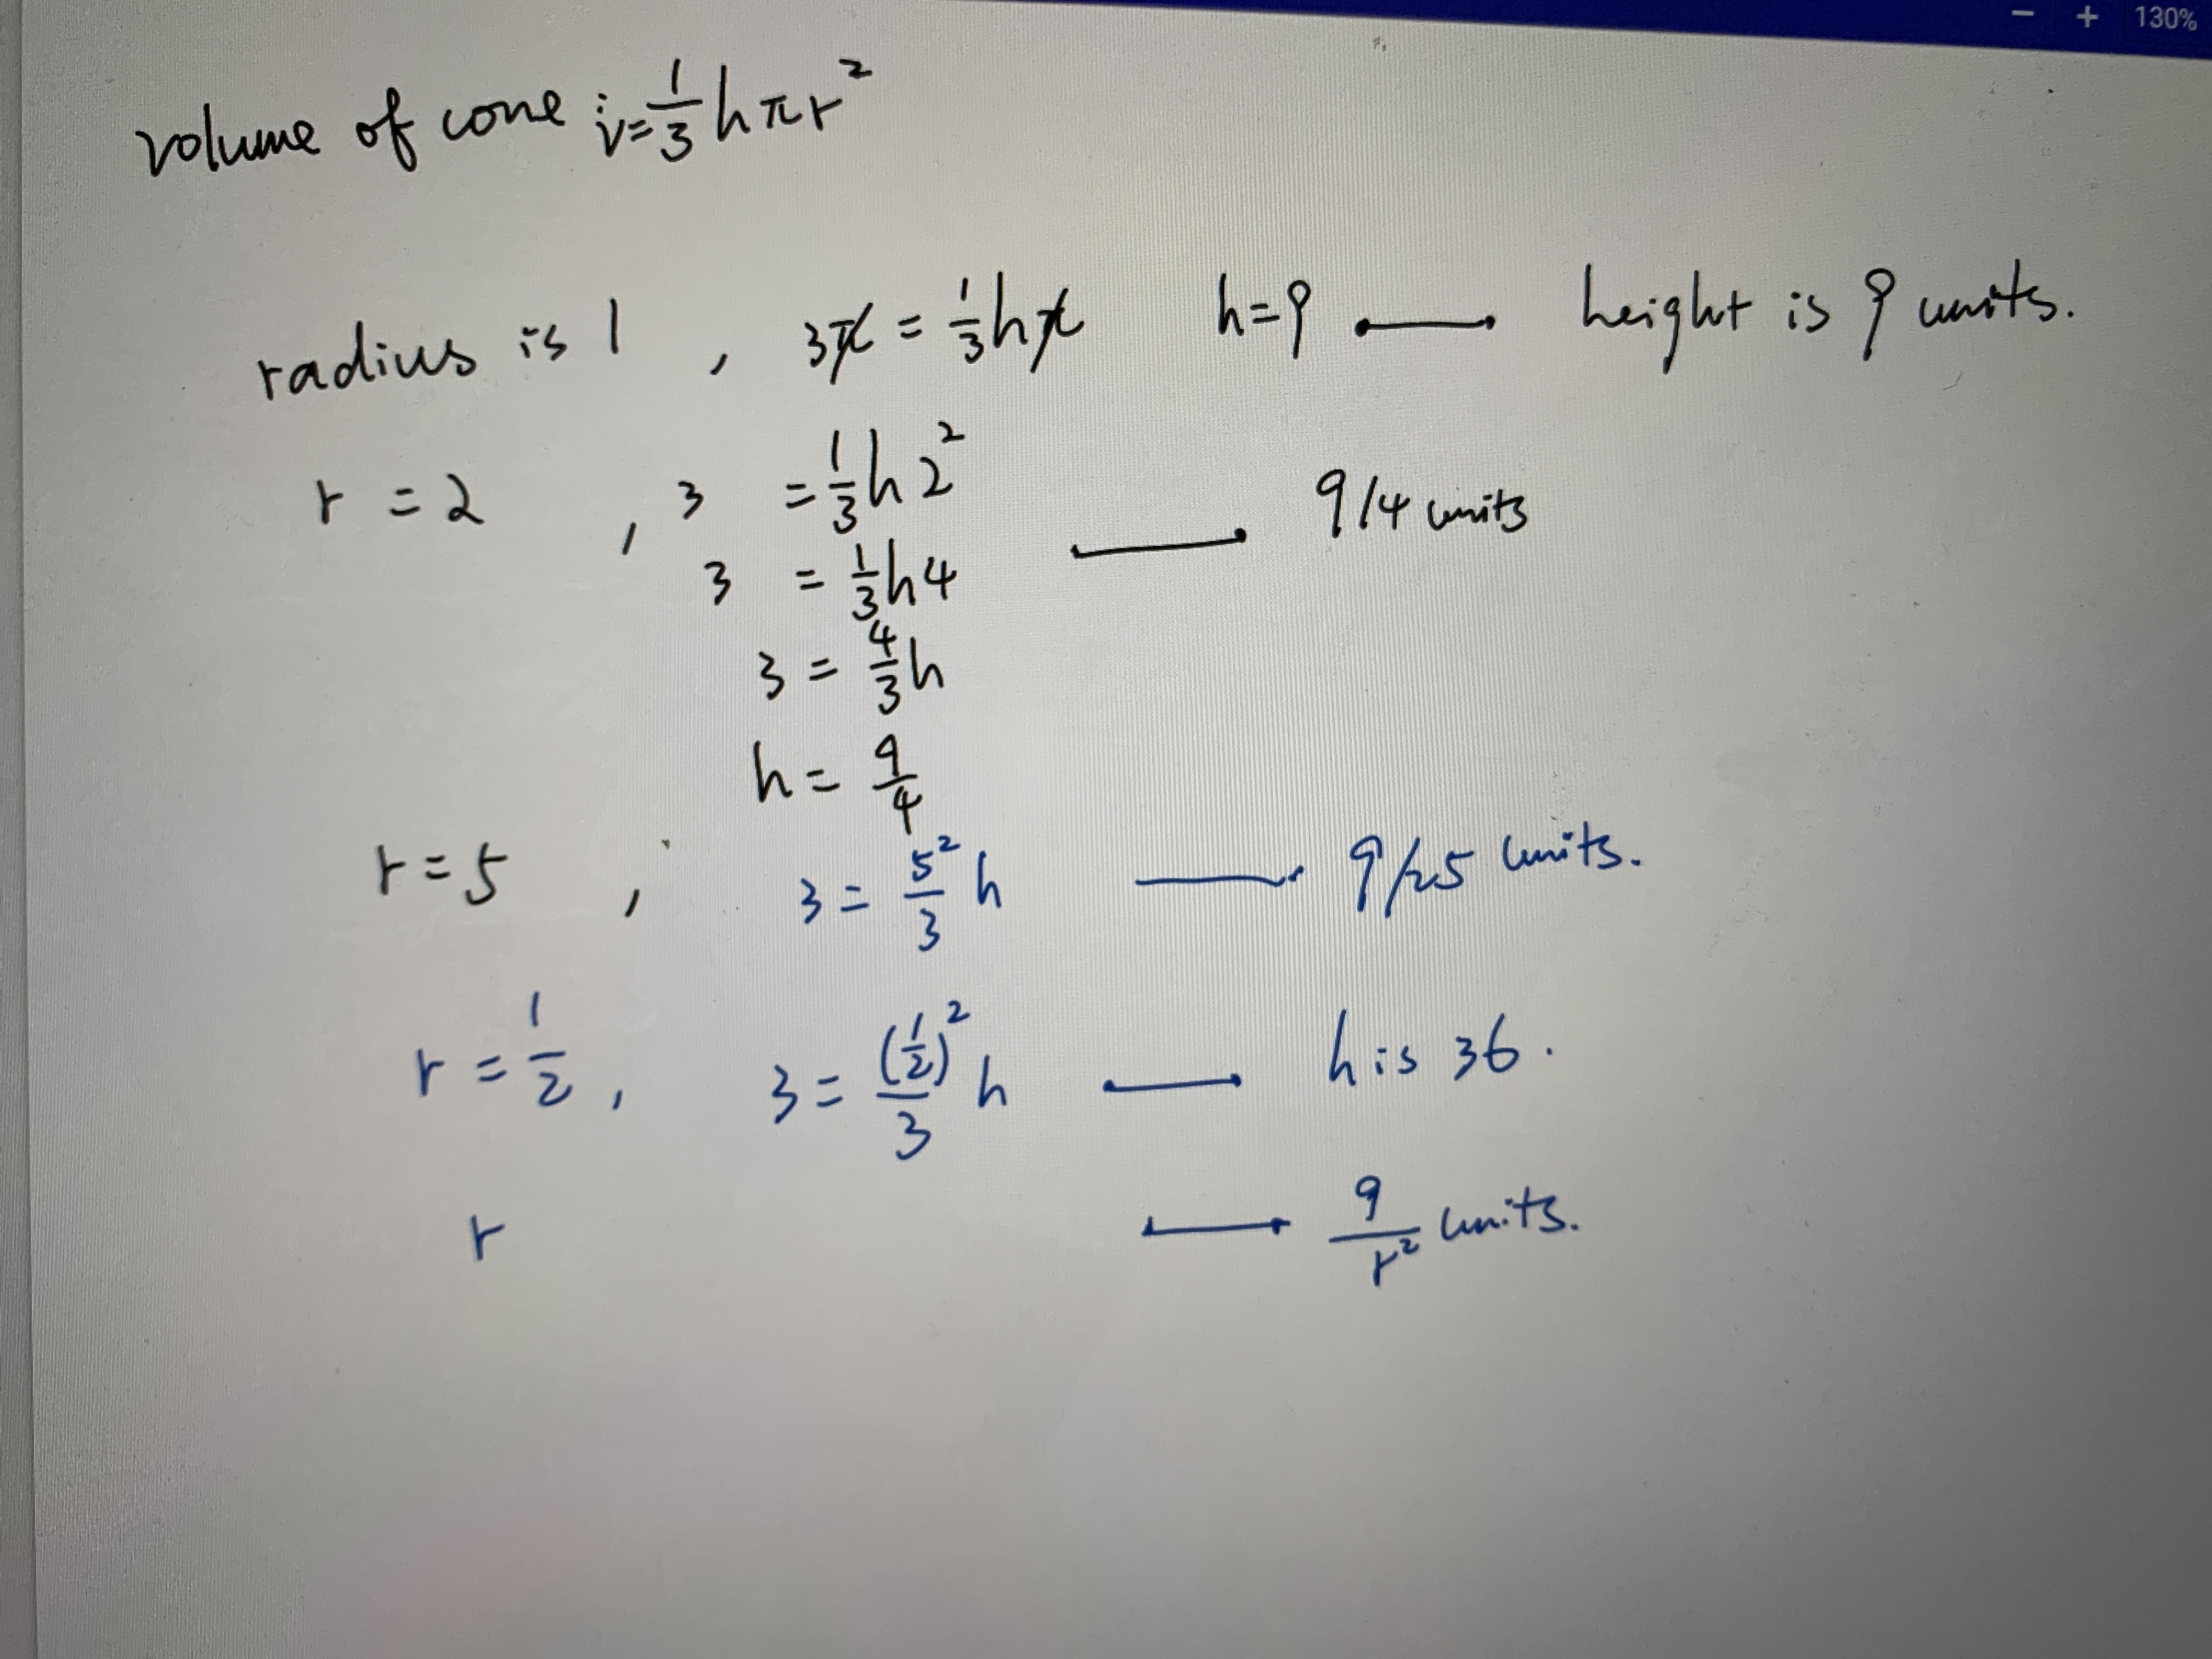 − + 130%
volume of cone is v=1/3 hπr²
radius is 1 , 3π = 1/3 hπ h=9 — height is 9 units.
r = 2 , 3 = 1/3 h 2² — 9/4 units
3 = 1/3 h4
3 = 4/3 h
h = 9/4
r = 5 , 3 = 5²/3 h — 9/25 units.
r = 1/2 , 3 = (1/2)²/3 h — h is 36.
r — 9/r² units.